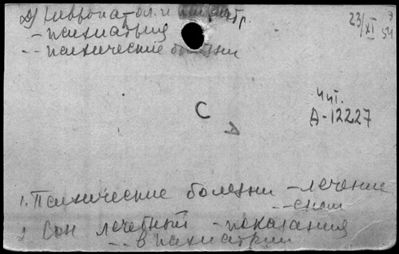 2) Невропатол. и психиатр.
- психиатрия
-- психические болезни
23/XI 54
Чит.
А-12227
С
1. Психические болезни - лечение
-- сном
2. Сон лечебный - показания
-- в психиатрии